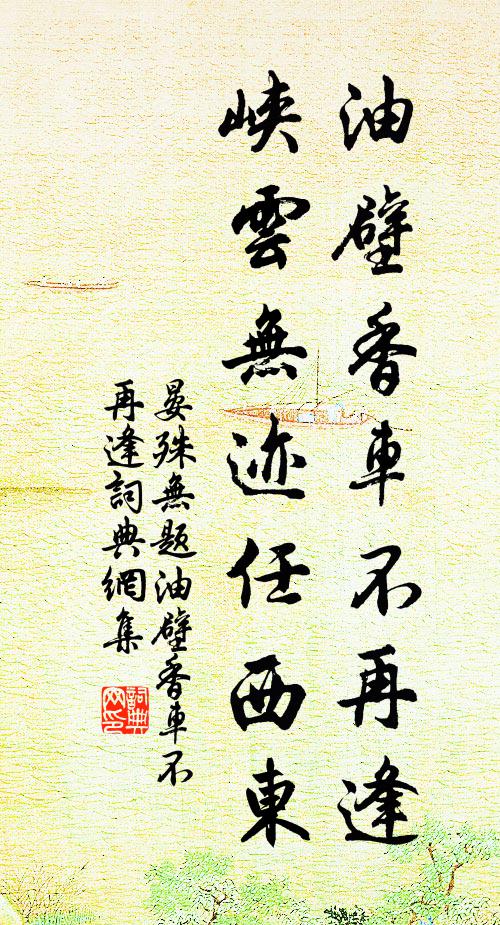 油壁香車不再逢
峽雲無迹任西東
晏殊無題油壁香車不
再逢詞典網集
詞典
网印